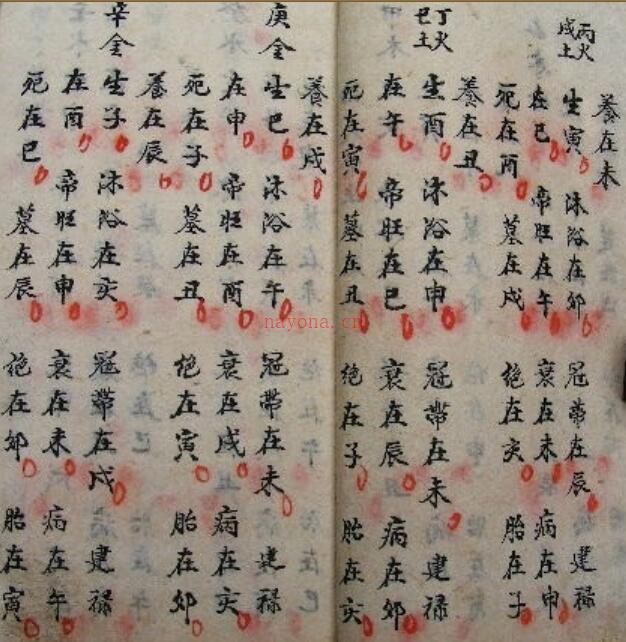 養在未
丙火
戊土
生寅 沐浴在卯 冠帶在辰 建禄
在巳 帝旺在午 衰在未 病在申
死在酉 墓在戌 绝在亥 胎在子
養在丑
丁火
己土
生酉 沐浴在申 冠帶在未 建禄
在午 帝旺在巳 衰在辰 病在卯
死在寅 墓在丑 绝在子 胎在亥
養在戌
庚金
生巳 沐浴在午 冠帶在未 建禄
在申 帝旺在酉 衰在戌 病在亥
死在子 墓在丑 绝在寅 胎在卯
養在辰
辛金
生子 沐浴在亥 冠帶在戌 建禄
在酉 帝旺在申 衰在未 病在午
死在巳 墓在辰 绝在卯 胎在寅
nayona.cn